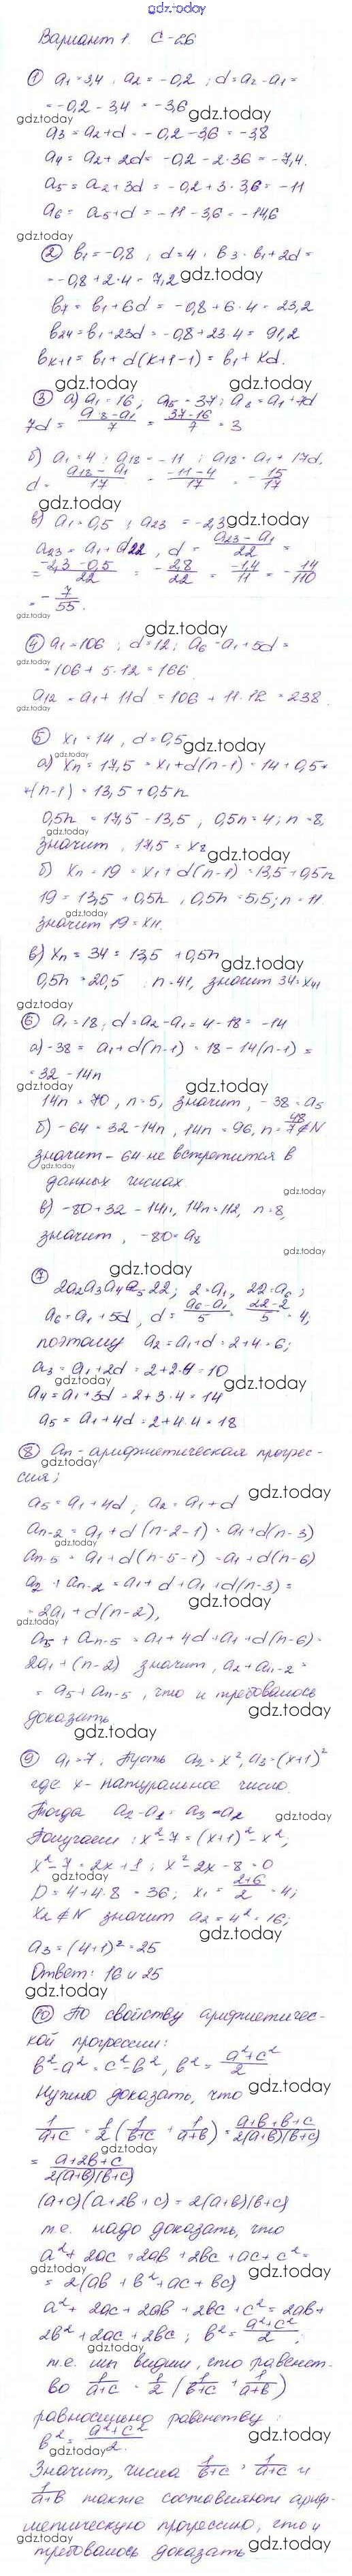 gdz.today
Вариант 1. С-26
① a₁ = 3,4 ; a₂ = -0,2 ; d = a₂ - a₁ =
= -0,2 - 3,4 = -3,6
a₃ = a₂ + d = -0,2 - 3,6 = -3,8
a₄ = a₂ + 2d = -0,2 - 2·3,6 = -7,4.
a₅ = a₂ + 3d = -0,2 + 3·3,6 = -11
a₆ = a₅ + d = -11 - 3,6 = -14,6
② b₁ = -0,8 ; d = 4 ; b₃ = b₁ + 2d =
= -0,8 + 2·4 = 7,2
b₇ = b₁ + 6d = -0,8 + 6·4 = 23,2
b₂₄ = b₁ + 23d = -0,8 + 23·4 = 91,2
bₖ₊₁ = b₁ + d(k+1-1) = b₁ + kd.
③ а) a₁ = 16 ; a₈ = 37 ; a₈ = a₁ + 7d
7d = (a₈ - a₁)/7 = (37-16)/7 = 3
б) a₁ = 4 ; a₁₈ = -11 ; a₁₈ = a₁ + 17d,
d = (a₁₈ - a₁)/17 = (-11-4)/17 = -15/17
в) a₁ = 0,5 ; a₂₃ = -2,3
a₂₃ = a₁ + d22 , d = (a₂₃ - a₁)/22 =
= (-2,3-0,5)/22 = -2,8/22 = -1,4/11 = -14/110
= -7/55.
④ a₁ = 106 ; d = 12 ; a₆ = a₁ + 5d =
= 106 + 5·12 = 166
a₁₂ = a₁ + 11d = 106 + 11·12 = 238
⑤ x₁ = 14 , d = 0,5
а) xₙ = 17,5 = x₁ + d(n-1) = 14 + 0,5·
·(n-1) = 13,5 + 0,5n
0,5n = 17,5 - 13,5 , 0,5n = 4 ; n = 8,
значит, 17,5 = x₈
б) xₙ = 19 = x₁ + d(n-1) = 13,5 + 0,5n
19 = 13,5 + 0,5n , 0,5n = 5,5 ; n = 11
значит 19 = x₁₁.
в) xₙ = 34 = 13,5 + 0,5n
0,5n = 20,5 ; n = 41, значит 34 = x₄₁
⑥ a₁ = 18 ; d = a₂ - a₁ = 4 - 18 = -14
а) -38 = a₁ + d(n-1) = 18 - 14(n-1) =
= 32 - 14n
14n = 70 , n = 5, значит, -38 = a₅
б) -64 = 32 - 14n , 14n = 96, n = 48/7 ∉ N
значит -64 не встретится в
данных числах
в) -80 = 32 - 14n, 14n = 112, n = 8,
значит, -80 = a₈
⑦
2a₂a₃a₄a₅22 ; 2 = a₁, 22 = a₆ ;
a₆ = a₁ + 5d , d = (a₆ - a₁)/5 = (22-2)/5 = 4 ;
поэтому a₂ = a₁ + d = 2 + 4 = 6 ;
a₃ = a₁ + 2d = 2 + 2·4 = 10
a₄ = a₁ + 3d = 2 + 3·4 = 14
a₅ = a₁ + 4d = 2 + 4·4 = 18
⑧ aₙ - арифметическая прогрес-
сия ;
a₅ = a₁ + 4d ; a₂ = a₁ + d
aₙ₋₂ = a₁ + d(n-2-1) = a₁ + d(n-3)
aₙ₋₅ = a₁ + d(n-5-1) = a₁ + d(n-6)
a₂ + aₙ₋₂ = a₁ + d + a₁ + d(n-3) =
= 2a₁ + d(n-2),
a₅ + aₙ₋₅ = a₁ + 4d + a₁ + d(n-6) =
2a₁ + (n-2) значит, a₂ + aₙ₋₂ =
= a₅ + aₙ₋₅ , что и требовалось
доказать
⑨ a₁ = 7. Пусть a₂ = x², a₃ = (x+1)²
где x - натуральное число.
Тогда a₂ - a₁ = a₃ - a₂
Получаем : x² - 7 = (x+1)² - x²,
x² - 7 = 2x + 1 ; x² - 2x - 8 = 0
D = 4 + 4·8 = 36 ; x₁ = (2+6)/2 = 4 ;
x₂ ∉ N значит a₂ = 4² = 16 ;
a₃ = (4+1)² = 25
Ответ: 16 и 25
⑩ По свойству арифметичес-
кой прогрессии:
b² - a² = c² - b², b² = (a²+c²)/2
Нужно доказать, что
1/(a+c) = 1/2 (1/(b+c) + 1/(a+b)) = (a+b+b+c)/(2(a+b)(b+c))
= (a+2b+c)/(2(a+b)(b+c))
(a+c)(a+2b+c) = 2(a+b)(b+c)
т.е. надо доказать, что
a² + 2ac + 2ab + 2bc + ac + c² =
= 2(ab + b² + ac + bc)
a² + 2ac + 2ab + 2bc + c² = 2ab +
2b² + 2ac + 2bc ; b² = (a²+c²)/2 ;
т.е. мы видим, что равенст-
во 1/(a+c) = 1/2 (1/(b+c) + 1/(a+b))
равносильно равенству :
b² = (a²+c²)/2.
Значит, числа 1/(b+c) , 1/(a+c) и
1/(a+b) также составляют ариф-
метическую прогрессию, что и
требовалось доказать